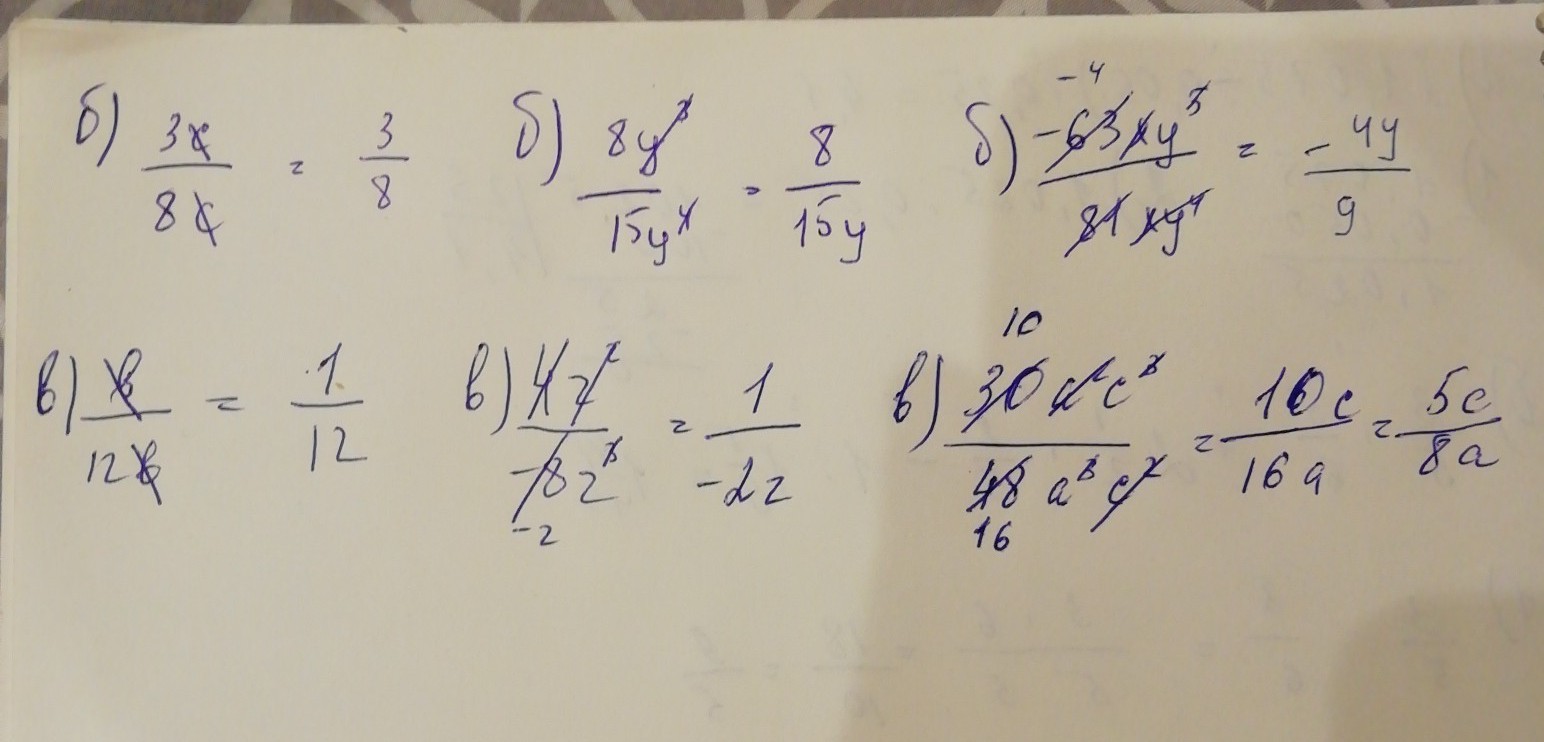 б) 3x/8x = 3/8 б) 8y³/15y⁴ = 8/15y б) -63xy⁵/81xy⁴ = -4y/9
-4
в) в/12в = 1/12 в) 4z²/-8z³ = 1/-2z в) 30a²c³/48a³c² = 10c/16a = 5c/8a
-2 10 16